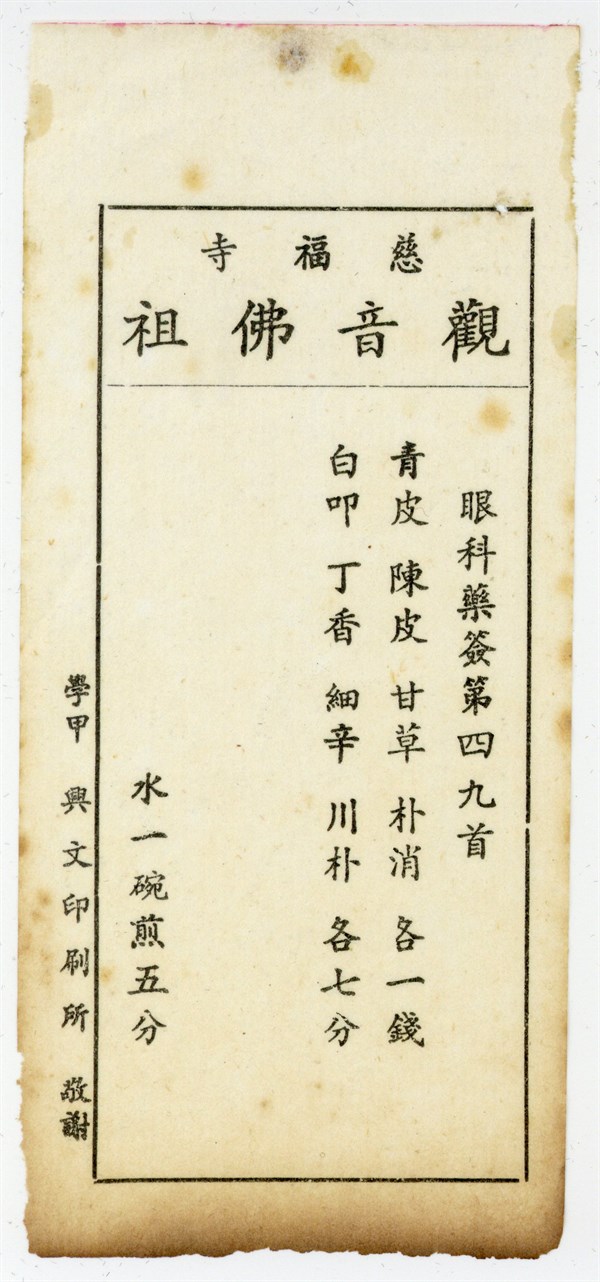 慈福寺
觀音佛祖
眼科藥簽第四九首
青皮 陳皮 甘草 朴消 各一錢
白叩 丁香 細辛 川朴 各七分
水一碗煎五分
學甲 興文印刷所 敬謝